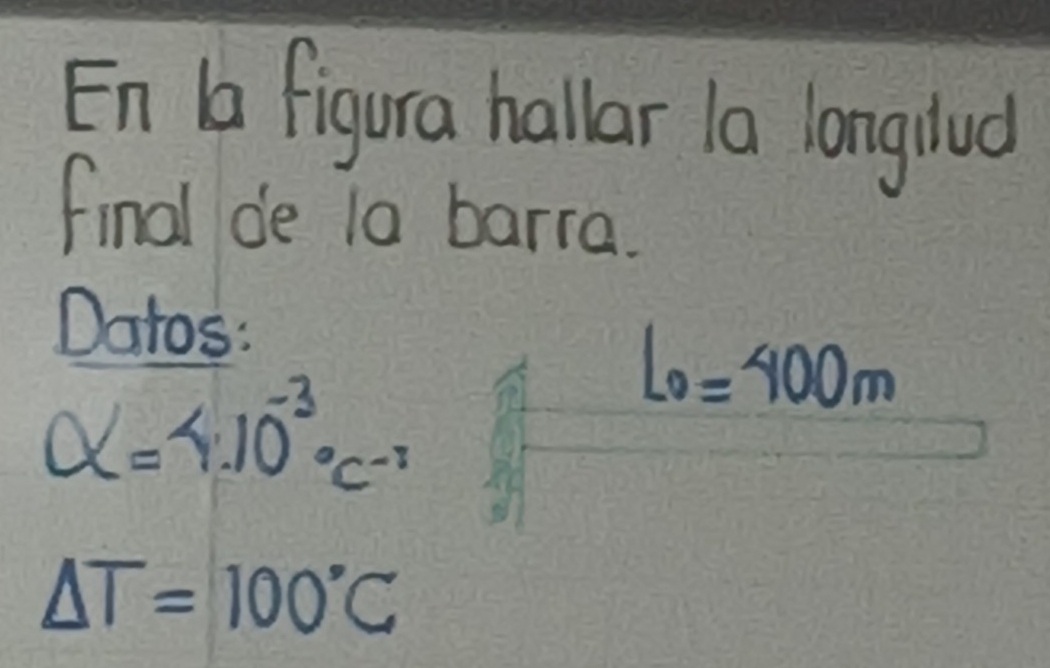 En la figura hallar la longitud
final de la barra.
Datos:
α = 4.10⁻³ °C⁻¹
L₀ = 400m
ΔT = 100°C